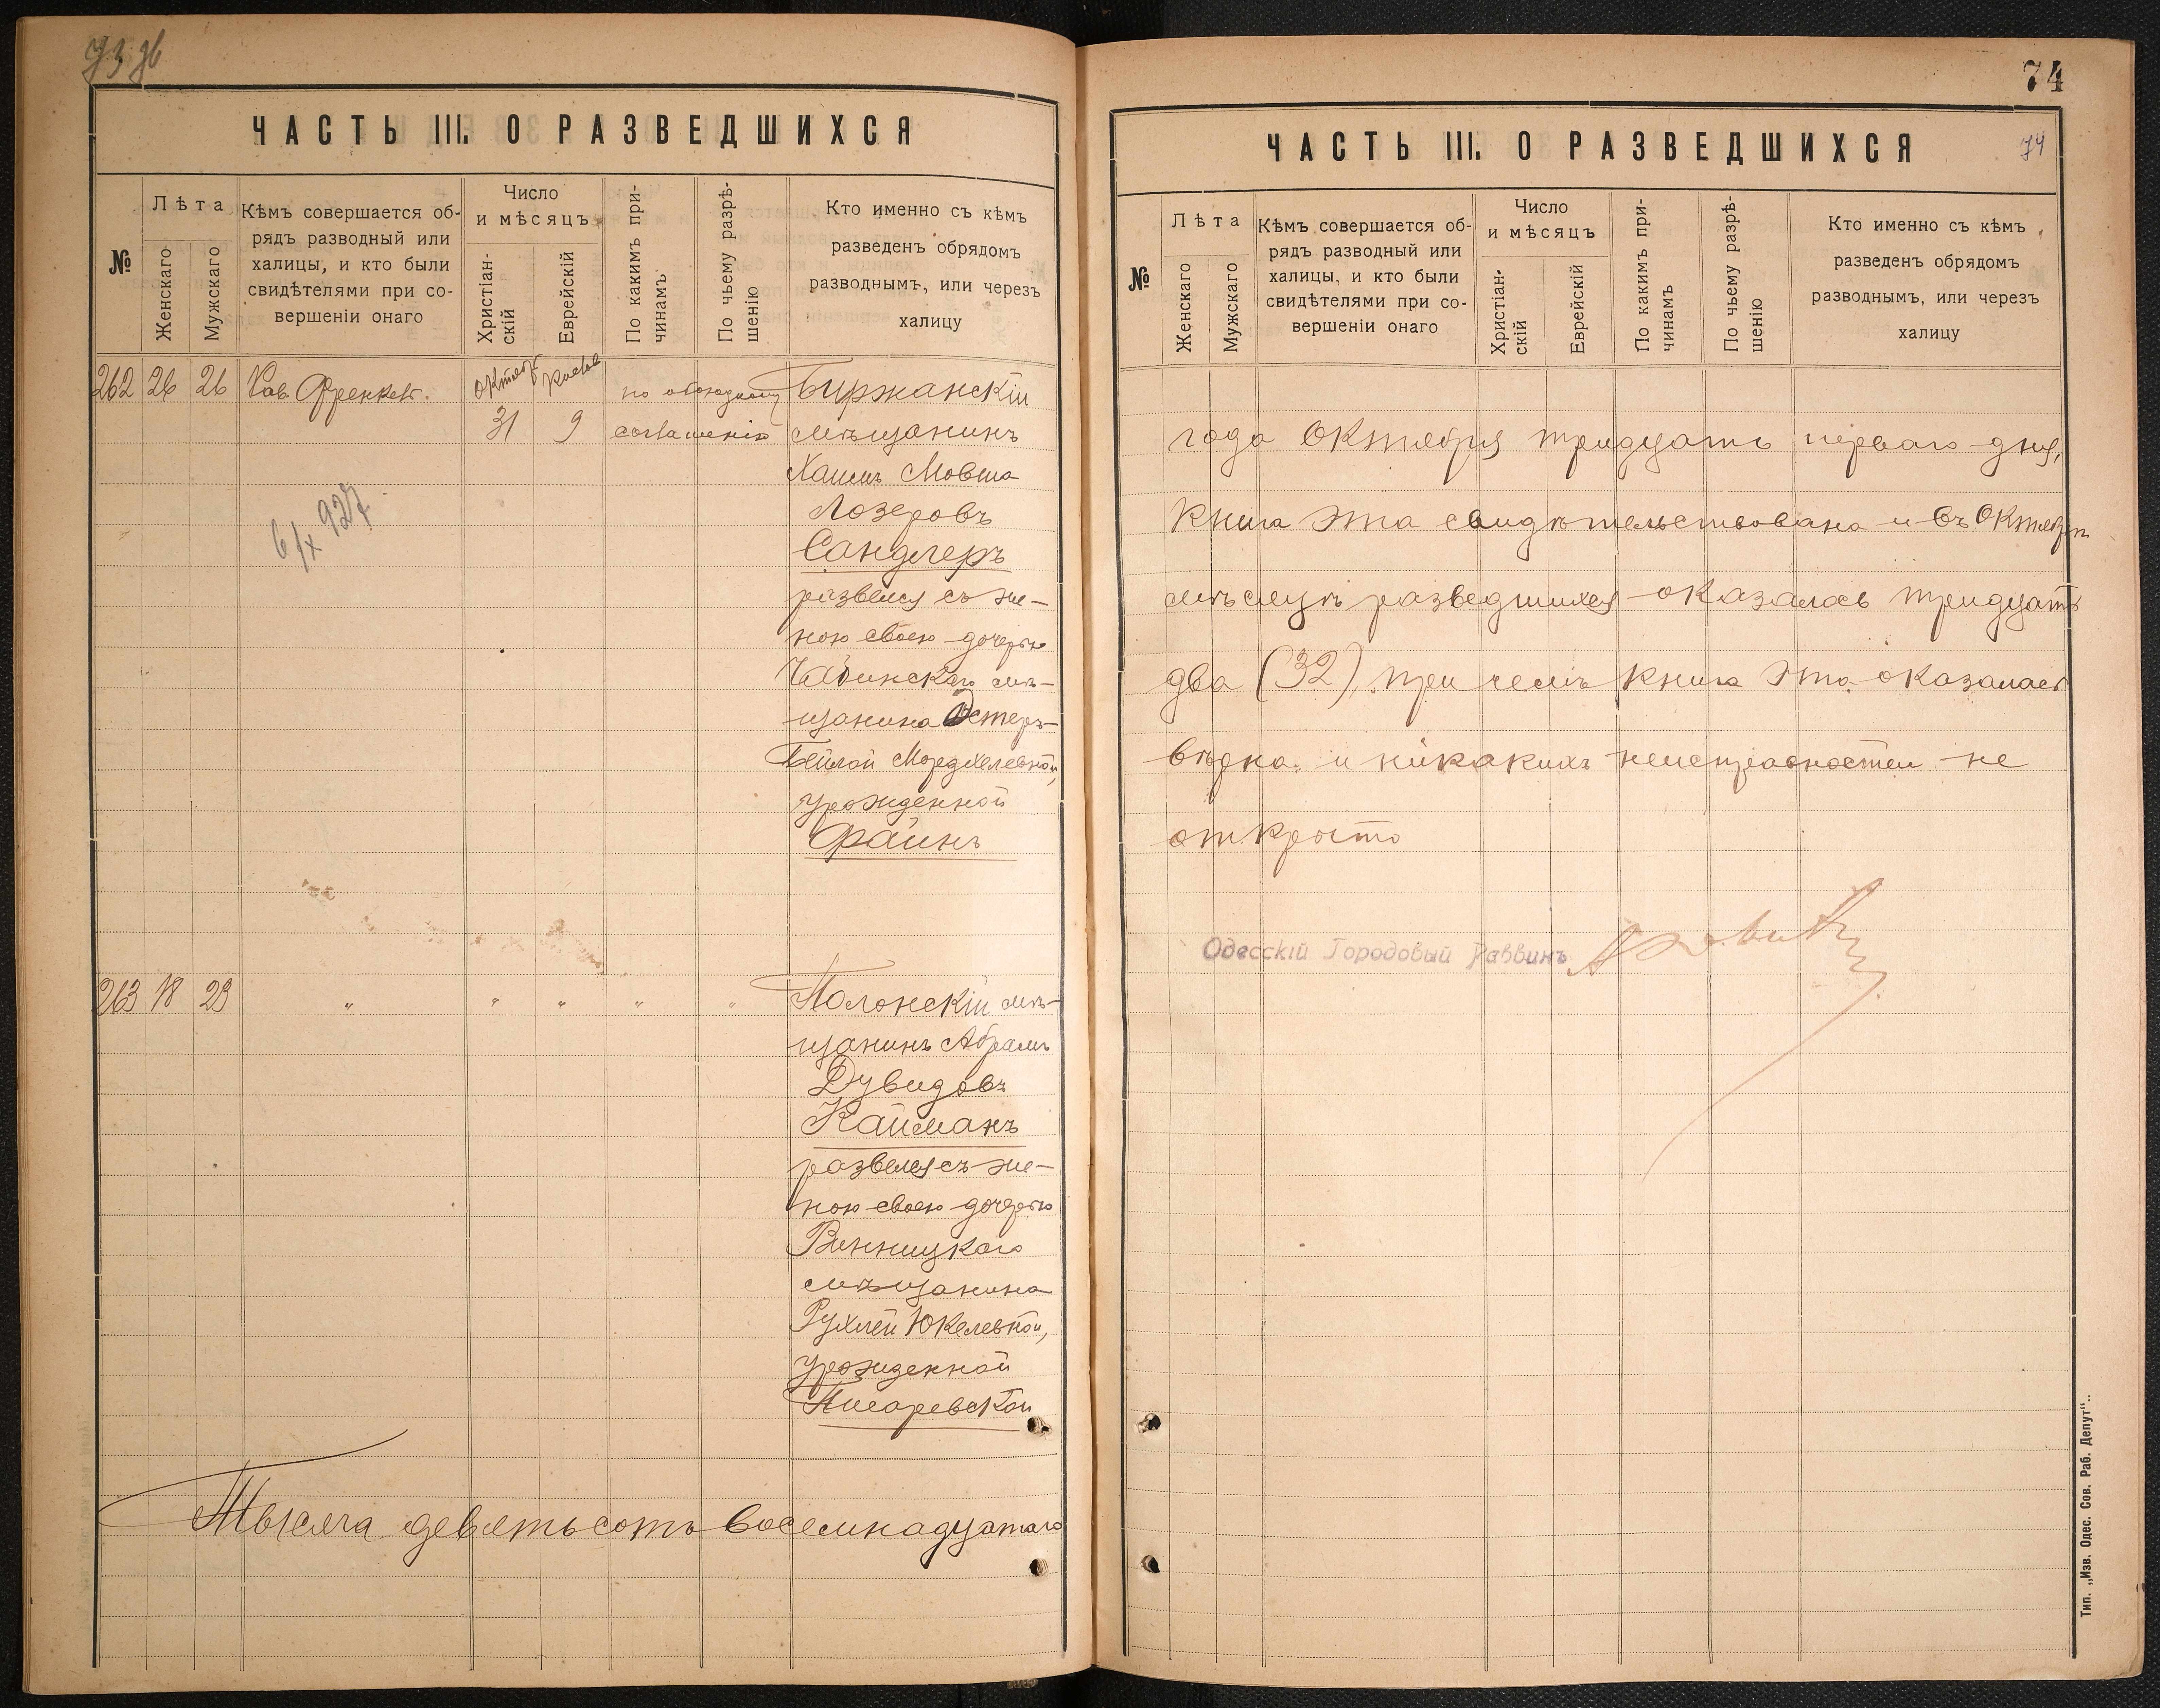 ЧАСТЬ III. О РАЗВЕДШИХСЯ
№
Лѣта
Женскаго
Мужскаго
Кѣмъ совершается об-
рядъ разводный или
халицы, и кто были
свидѣтелями при со-
вершеніи онаго
Число
и мѣсяцъ
Христіан-
скій
Еврейскій
По какимъ при-
чинамъ
По чьему разрѣ-
шенію
Кто именно съ кѣмъ
разведенъ обрядомъ
разводнымъ, или черезъ
халицу
262 26 26 Френкель. по обоюдному Биржанскій
31 9 соглашенію мѣщанинъ
Хаимъ Мовша
Лозеровъ
Сандлеръ
развелся съ же-
ною своею дочерью
мѣ-
щанина Эстеръ-
Бейлой Мордхелевной,
урожденной
Файнъ
263 18 23 " " " " " Полонскій мѣ-
щанинъ Абрамъ
Дувидовъ
Кайманъ
развелся съ же-
ною своею дочерью
Винницкаго
мѣщанина
Рухлей Юкелевной,
урожденной
Писаревской
Тысяча девятьсотъ восемнадцатаго
74
ЧАСТЬ III. О РАЗВЕДШИХСЯ
74
№
Лѣта
Женскаго
Мужскаго
Кѣмъ совершается об-
рядъ разводный или
халицы, и кто были
свидѣтелями при со-
вершеніи онаго
Число
и мѣсяцъ
Христіан-
скій
Еврейскій
По какимъ при-
чинамъ
По чьему разрѣ-
шенію
Кто именно съ кѣмъ
разведенъ обрядомъ
разводнымъ, или черезъ
халицу
года Октября тридцать перваго дня,
книга эта свидѣтельствована и въ Октябрѣ
мѣсяцѣ разведшихся оказалось тридцать
два (32), при чемъ книга эта оказалась
вѣрна и никакихъ неисправностей не
открыто
Одесскій Городовый Раввинъ
Тип. „Изв. Одес. Сов. Раб. Депут“.